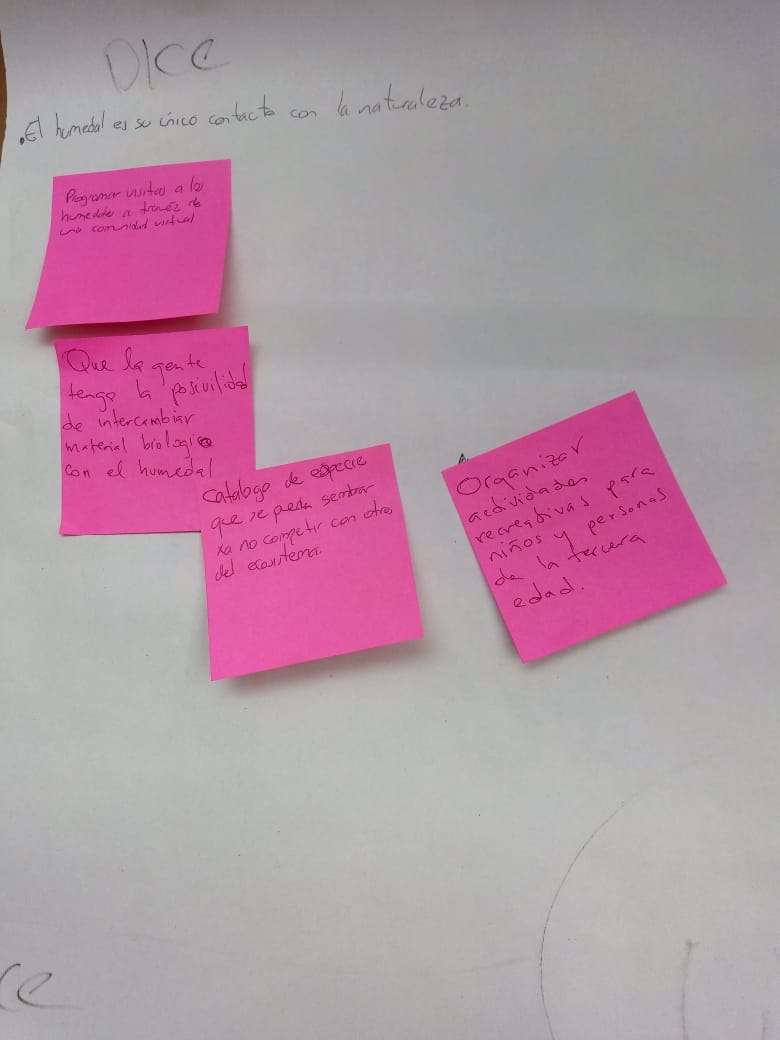 DICE
.El humedal es su único contacto con la naturaleza.
Programar visitas a los
humedales a travéz de
una comunidad virtual
Que la gente
tenga la posivilidad
de intercambiar
material biologico
con el humedal
Catalogo de especie
que se pueda sembrar
xa no competir con otras
del ecosistema.
Organizar
actividades
recreativas para
niños y personas
de la tercera
edad.
ce